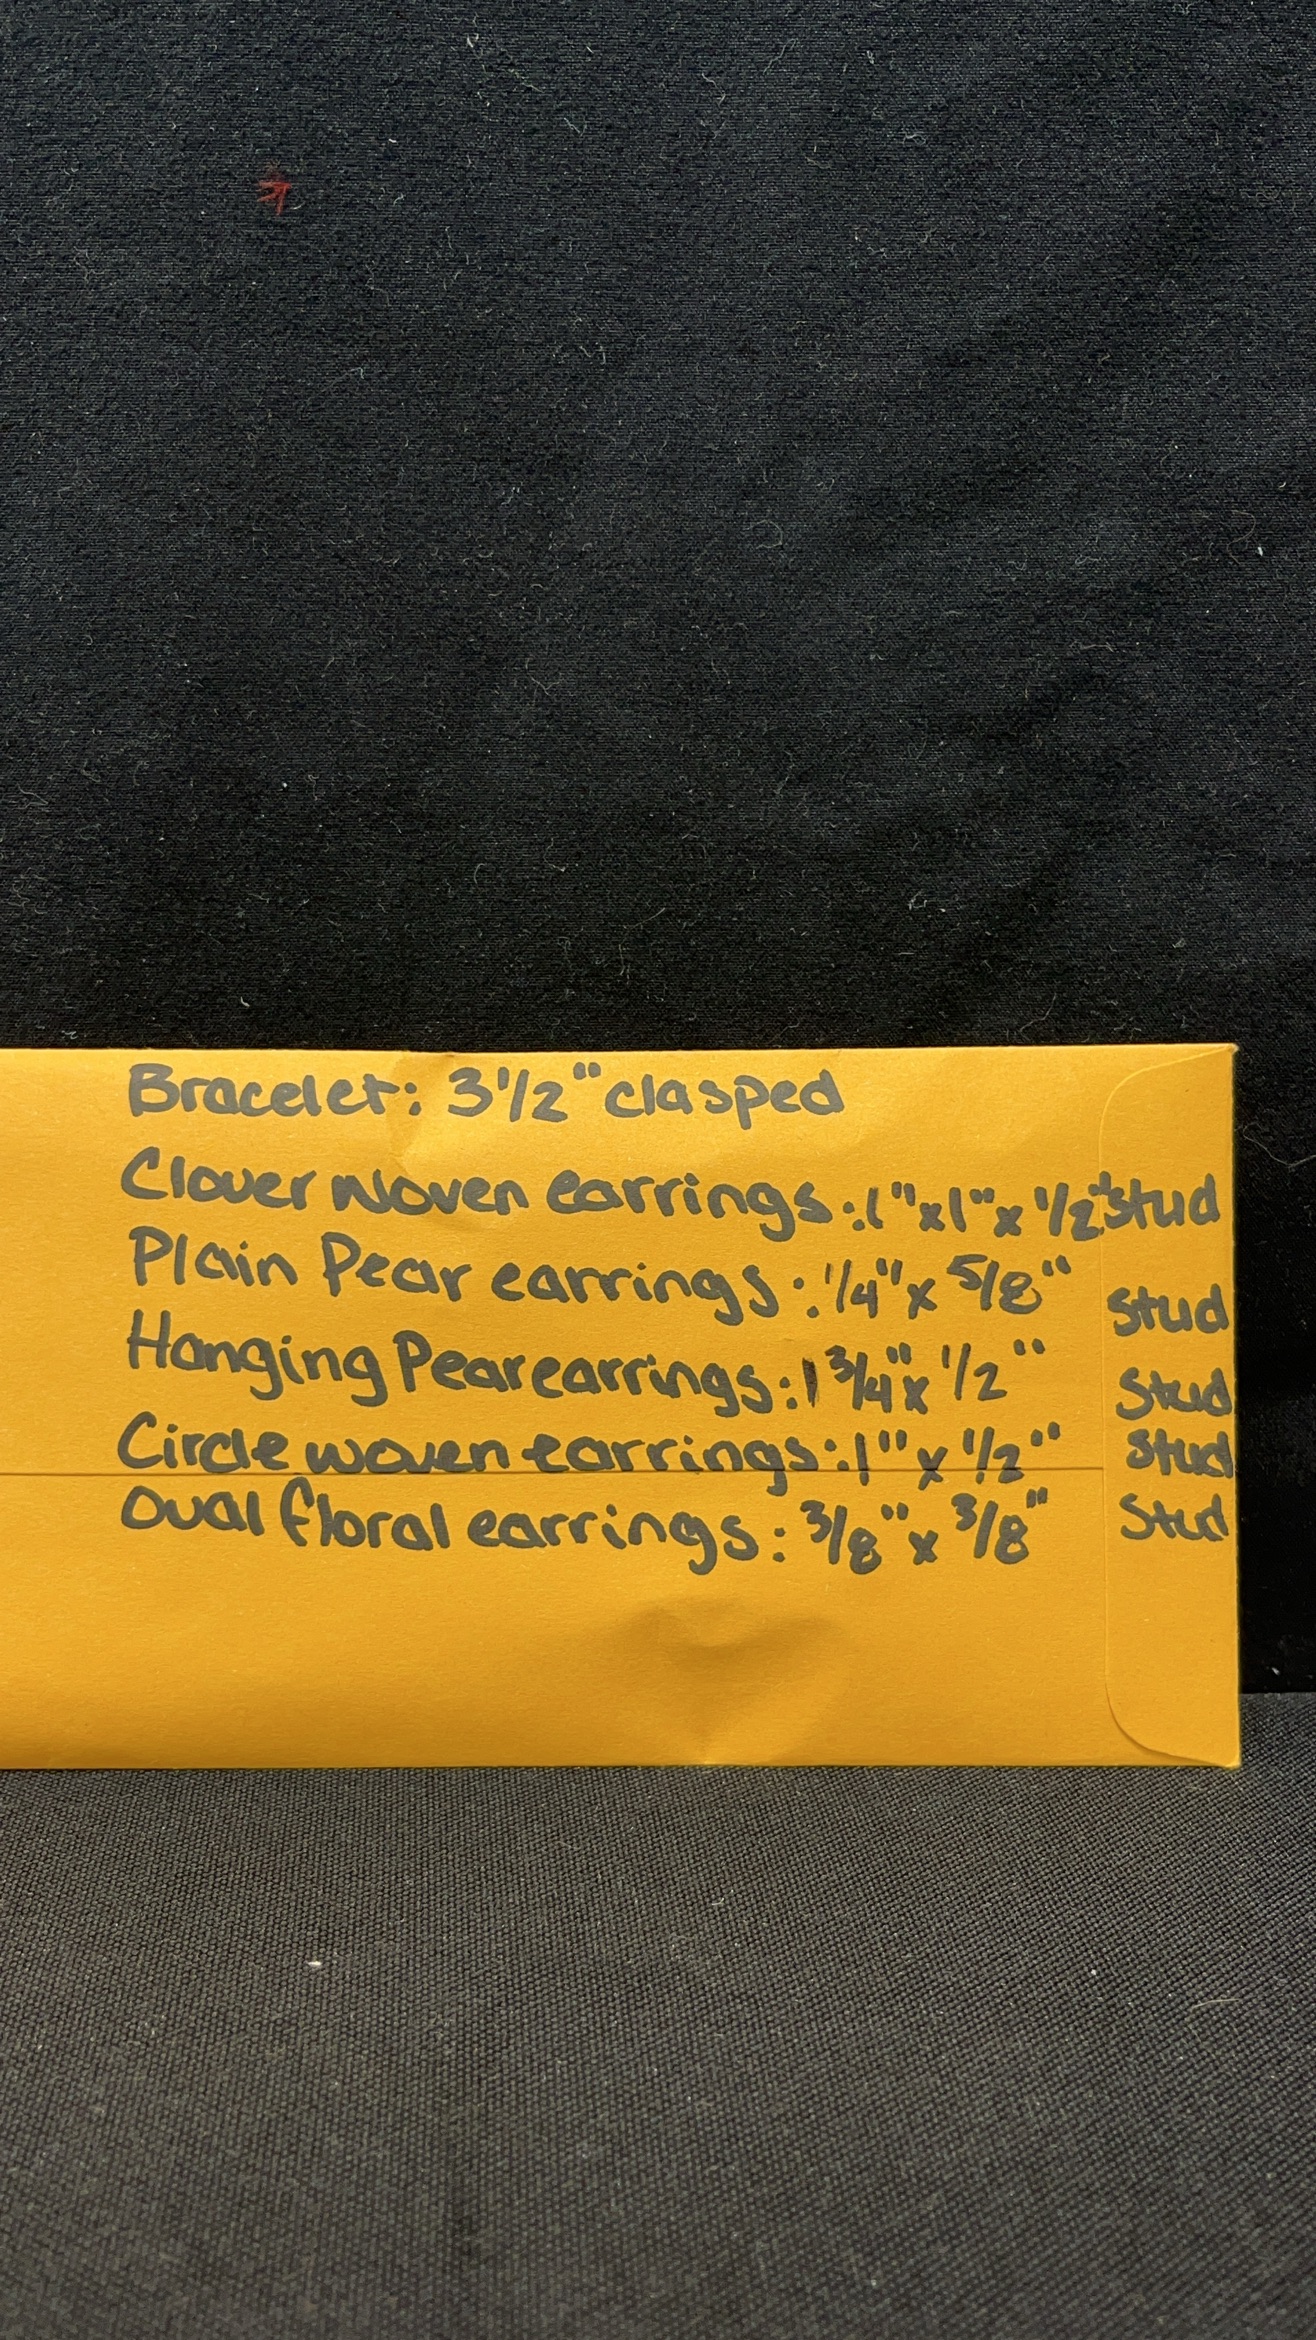 Bracelet: 3 1/2" clasped
Clover woven earrings: 1" x 1" x 1/2" stud
Plain Pear earrings: 1/4" x 5/8" stud
Hanging Pear earrings: 1 3/4" x 1/2" stud
Circle woven earrings: 1" x 1/2" stud
Oval floral earrings: 3/8" x 3/8" stud